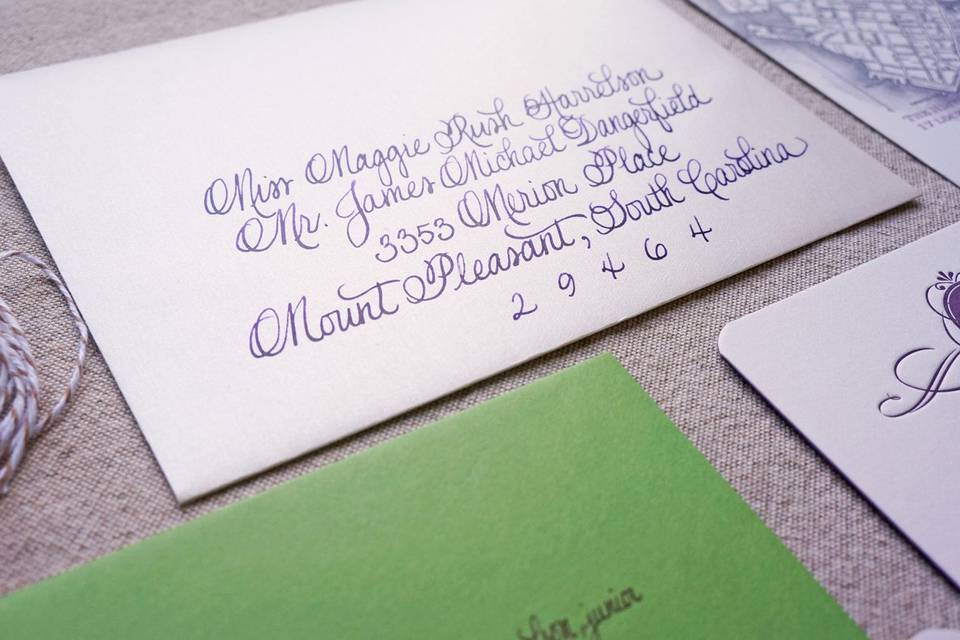 Miss Maggie Rush Harrelson
Mr. James Michael Dangerfield
3353 Merion Place
Mount Pleasant, South Carolina
29464
junior